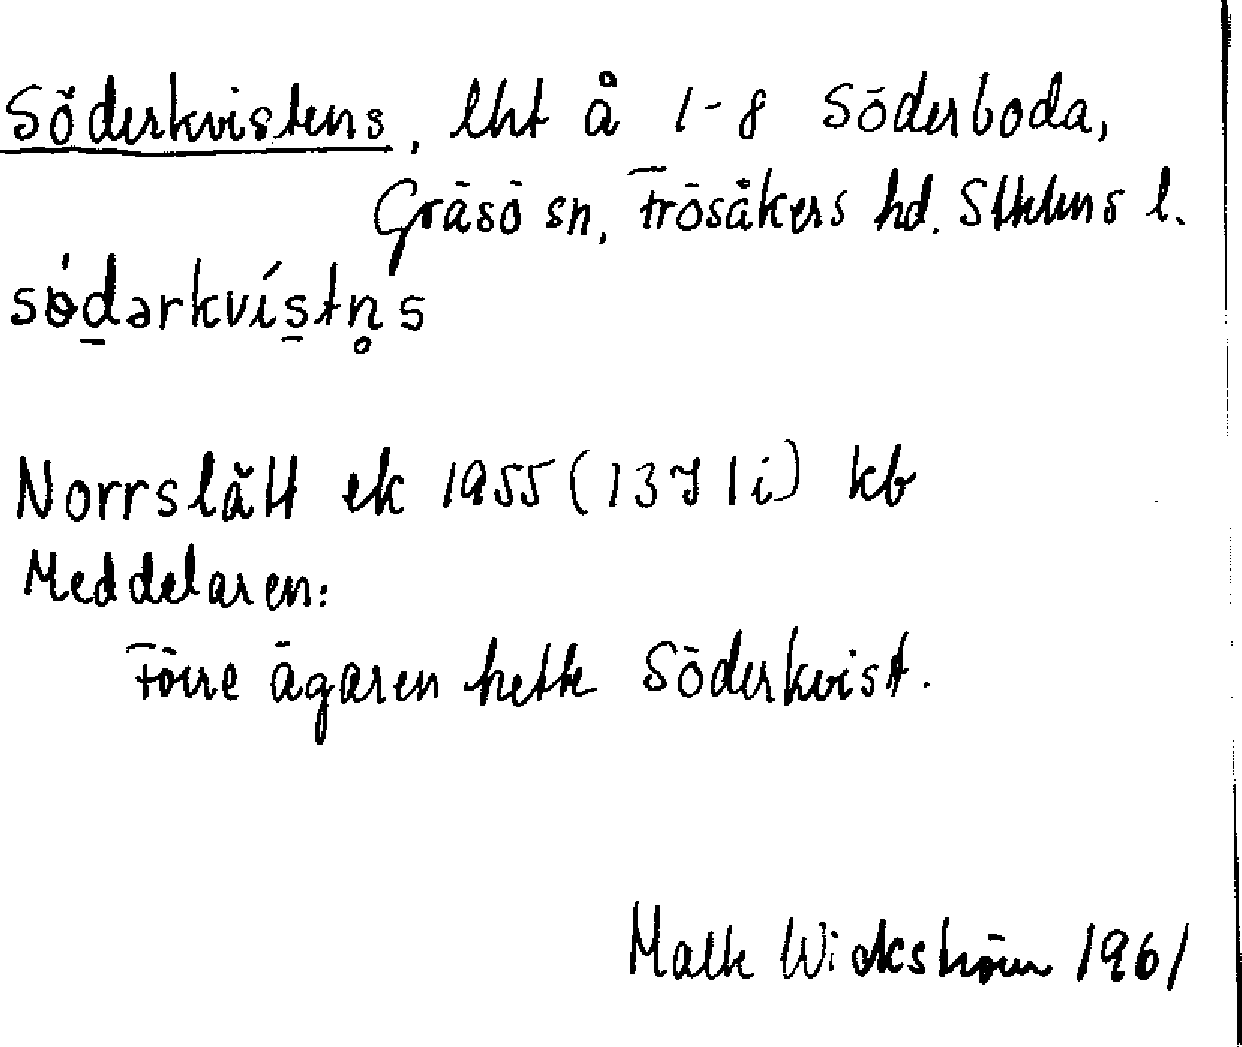 Söderkvistens, lht å 1-8 Söderboda,
Gräsö sn, Frösåkers hd. Sthlms l.
sɵ́dərkvìstn̥s
Norrslätt ek 1955 (13J 1i) kb
Meddelaren:
Förre ägaren hette Söderkvist.
Malte Wickström 1961